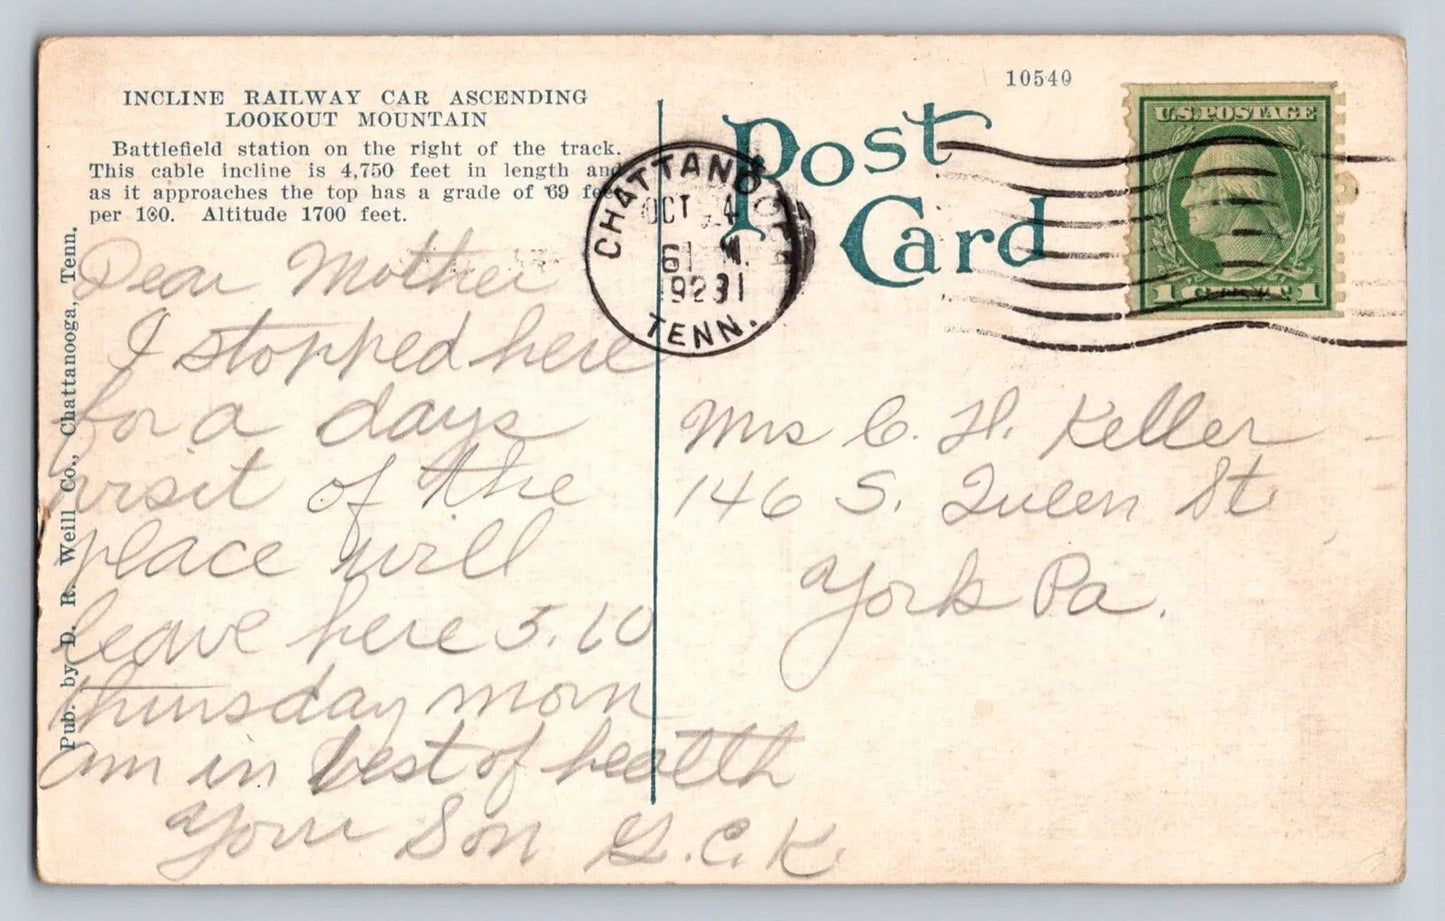 INCLINE RAILWAY CAR ASCENDING
LOOKOUT MOUNTAIN
Battlefield station on the right of the track.
This cable incline is 4,750 feet in length and
as it approaches the top has a grade of 69 feet
per 100. Altitude 1700 feet.
Dear Mother
I stopped here
for a days
visit of the
place will
leave here 5.10
thursday morn
am in best of health
Your Son G.C.K.
Pub. by D. R. Weill Co., Chattanooga, Tenn.
10540
Post
Card
CHATTANOOGA
OCT 4
TENN.
U.S. POSTAGE
1 CENT 1
Mrs C. H. Keller
146 S. Queen St.
York Pa.